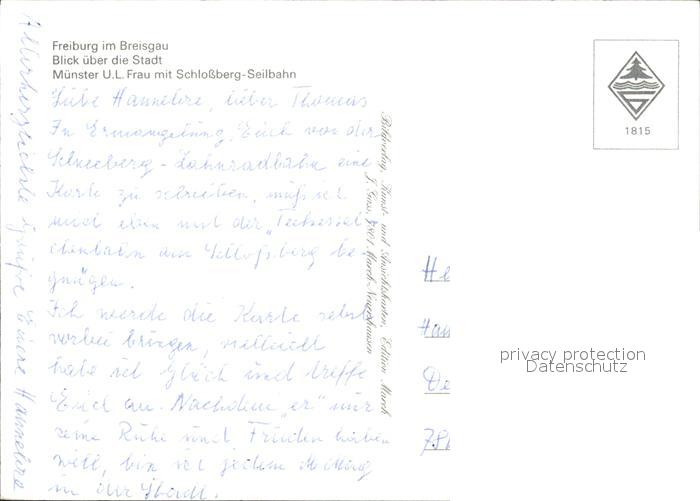 Freiburg im Breisgau
Blick über die Stadt
Münster U.L. Frau mit Schloßberg-Seilbahn
Liebe Hannelore, lieber Thomas
In Ermangelung, Euch von der
Schneeberg - Zahnradbahn eine
Karte zu schreiben, muß ich
mich eben mit der
chenbahn am Schloßberg be-
gnügen.
Ich werde die Karte selbst
vorbei bringen, vielleicht
habe ich Glück und treffe
Euch an. Nachdem "er" nur
seine Ruhe und Frieden haben
will, bin ich jeden Mittag
in der Stadt.
Allerherzlichste Grüße Eure Hannelore
Bildverlag, Kunst- und Ansichtskarten, Edition March
7801 March-Neuershausen
1815
He
Han
De
78
privacy protection
Datenschutz